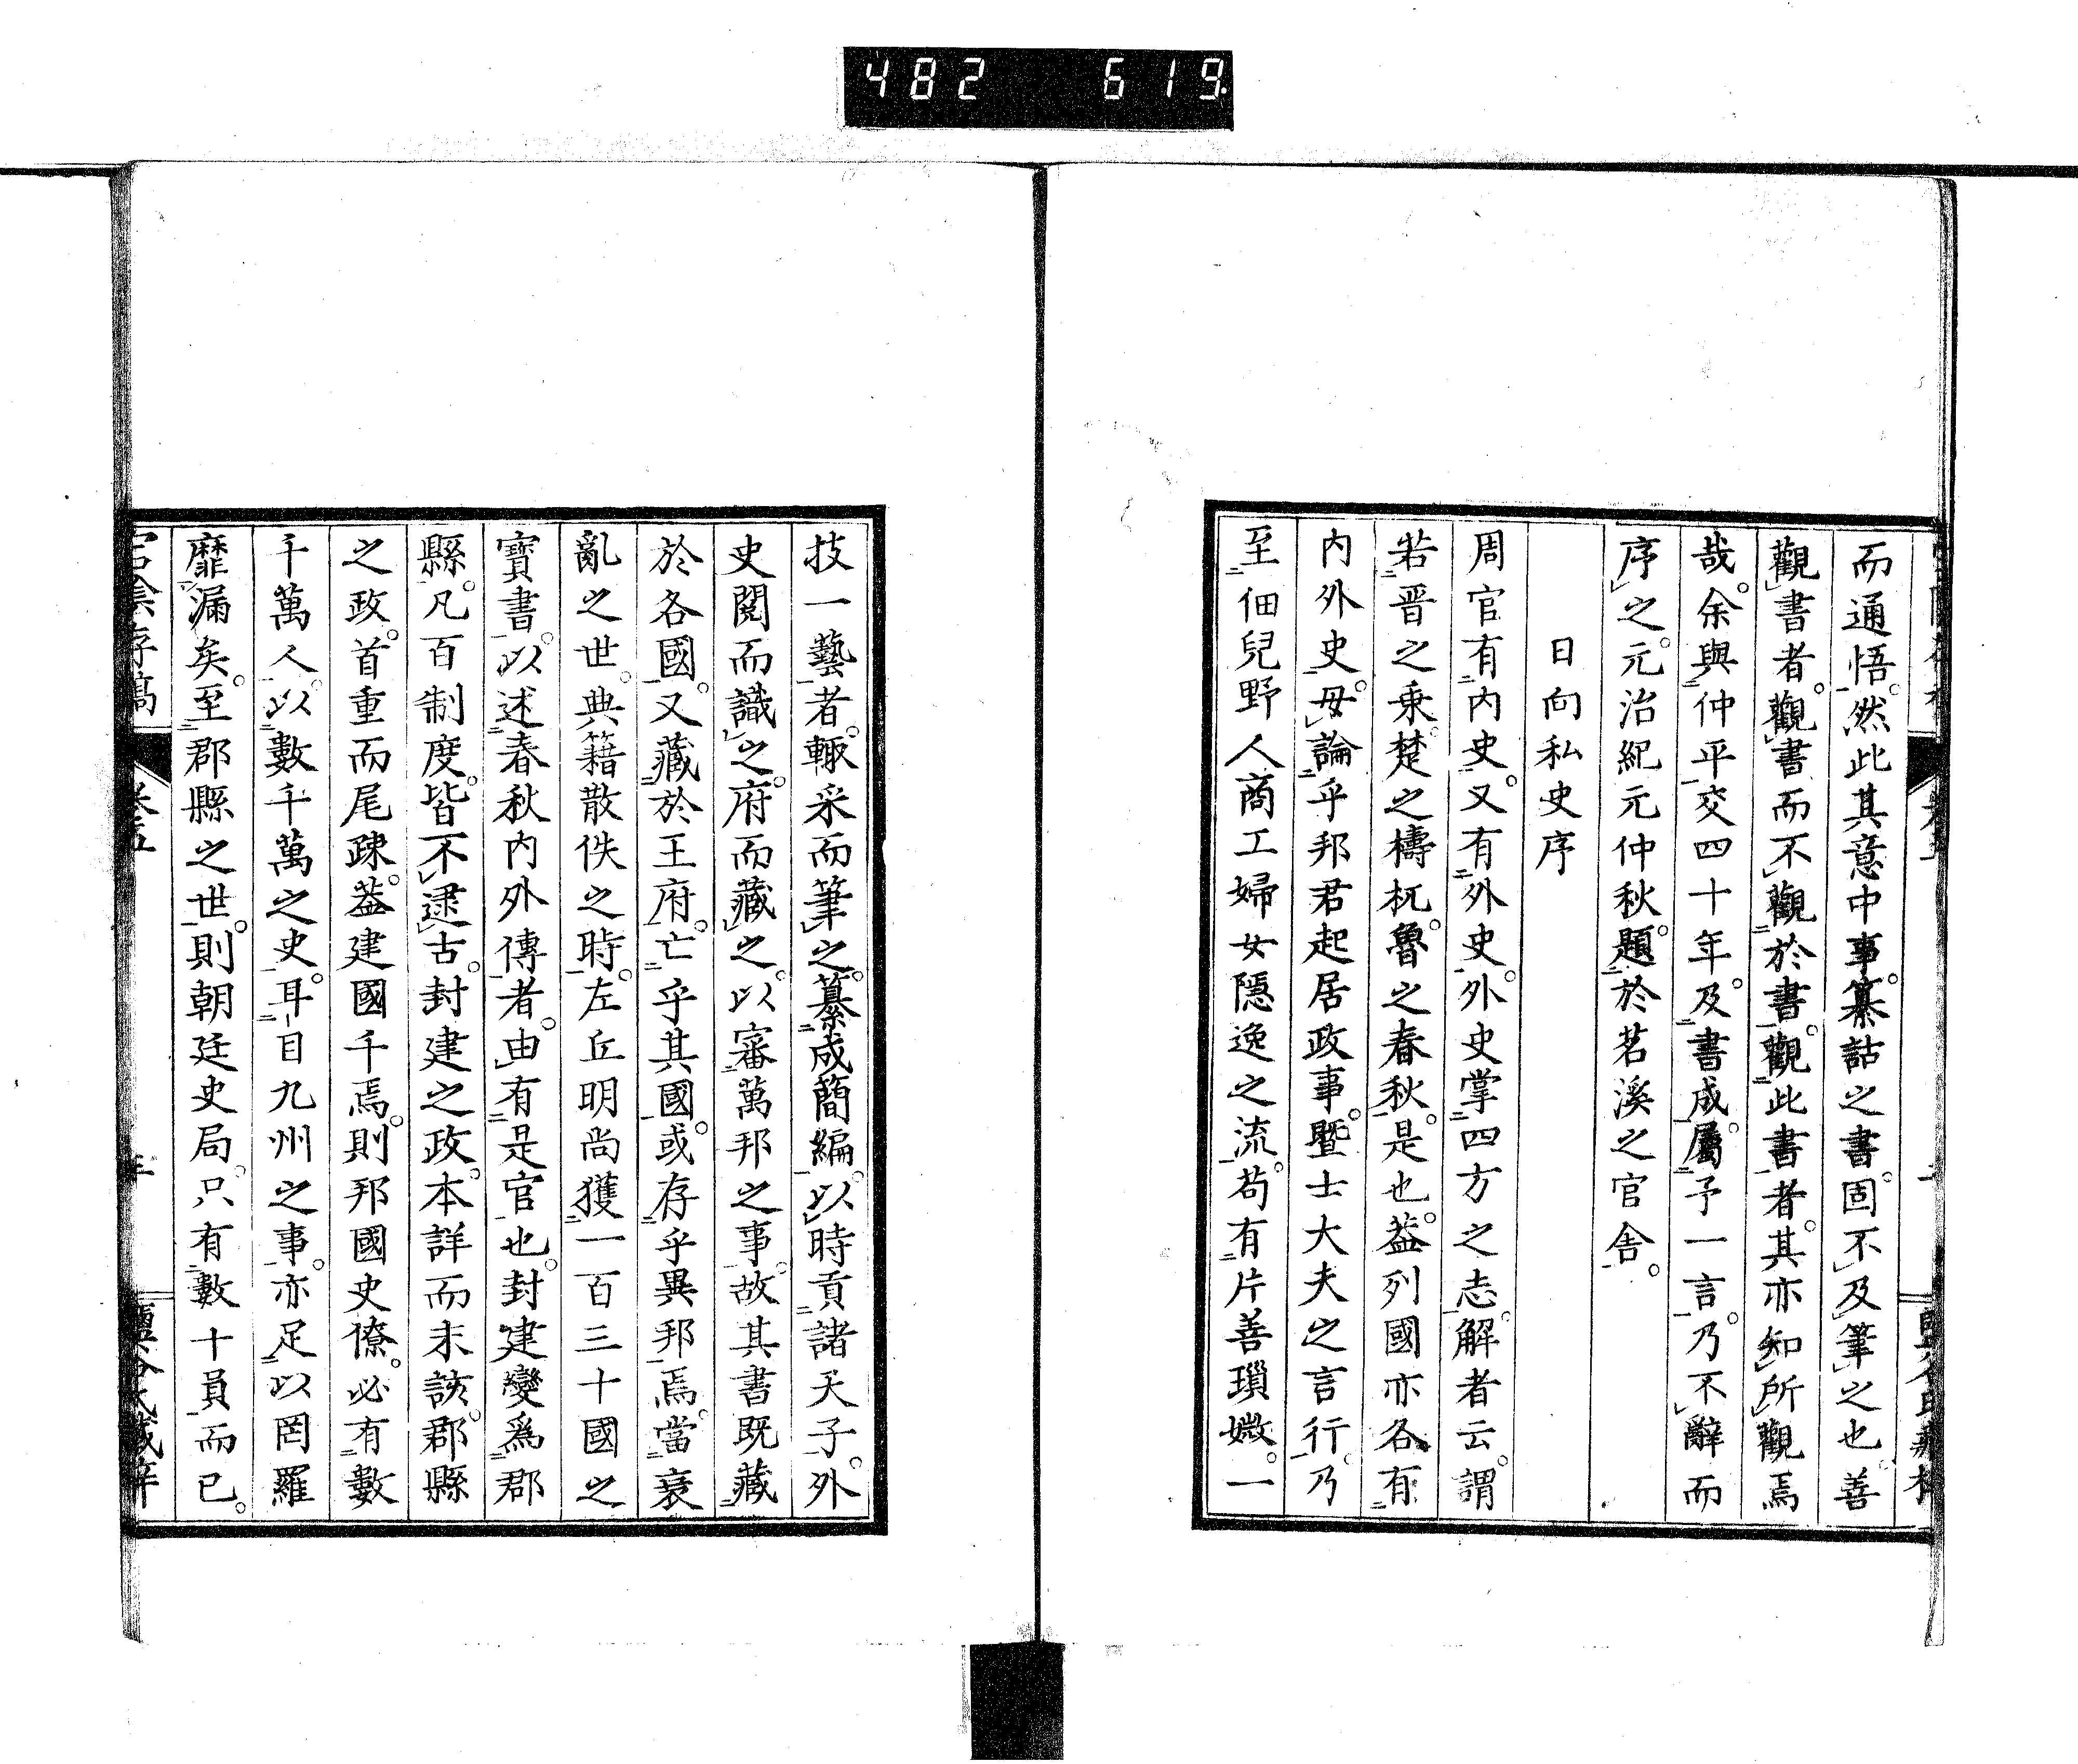 482 619
而通悟。然此其意中事。纂詁之書。固不及筆之也。善
觀書者。觀書而不觀於書。觀此書者。其亦知所觀焉
哉。余與仲平交四十年。及書成。屬予一言。乃不辭而
序之。元治紀元仲秋。題於茗溪之官舍。
日向私史序
周官有内史。又有外史。外史掌四方之志。解者云。謂
若晋之乗。楚之檮杌。魯之春秋。是也。葢列國亦各有
内外史。毋論乎邦君起居政事。曁士大夫之言行。乃
至佃兒野人商工婦女隱逸之流。苟有片善瑣㣲。一
技一藝者。輙采而筆之。纂成簡編。以時貢諸天子。外
史閲而識之。府而藏之。以審萬邦之事。故其書既藏
於各國。又藏於王府。亡乎其國。或存乎異邦焉。當衰
亂之世。典籍散佚之時。左丘明尚獲一百三十國之
寳書。以述春秋内外傳者。由有是官也。封建變爲郡
縣。凡百制度。皆不逮古。封建之政。本詳而末該。郡縣
之政。首重而尾疎。葢建國千焉。則邦國史僚。必有數
千萬人。以數千萬之史。耳目九州之事。亦足以罔羅
靡漏矣。至郡縣之世。則朝廷史局。只有數十員而已。
宕陰存稿 卷五